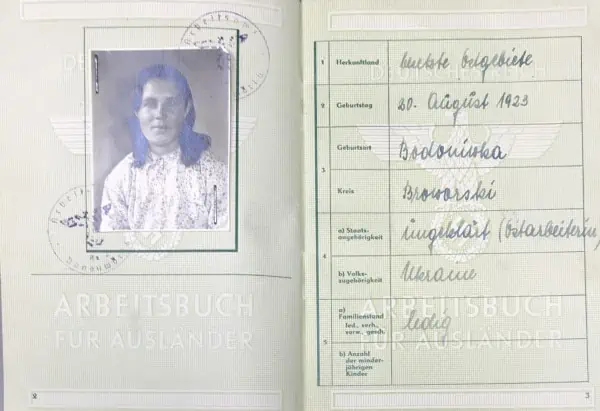 Arbeitsamt
ARBEITSBUCH
FÜR AUSLÄNDER
2
1 Herkunftland besetzte Ostgebiete
2 Geburtstag 20. August 1923
3 Geburtsort Bodoniwka
Kreis Browarski
4 a) Staats-
angehörigkeit ungeklärt (Ostarbeiterin)
b) Volks-
zugehörigkeit Ukraine
5 a)
Familienstand ledig
led., verh.,
verw., gesch.
b) Anzahl
der minder-
jährigen
Kinder
ARBEITSBUCH
FÜR AUSLÄNDER
3